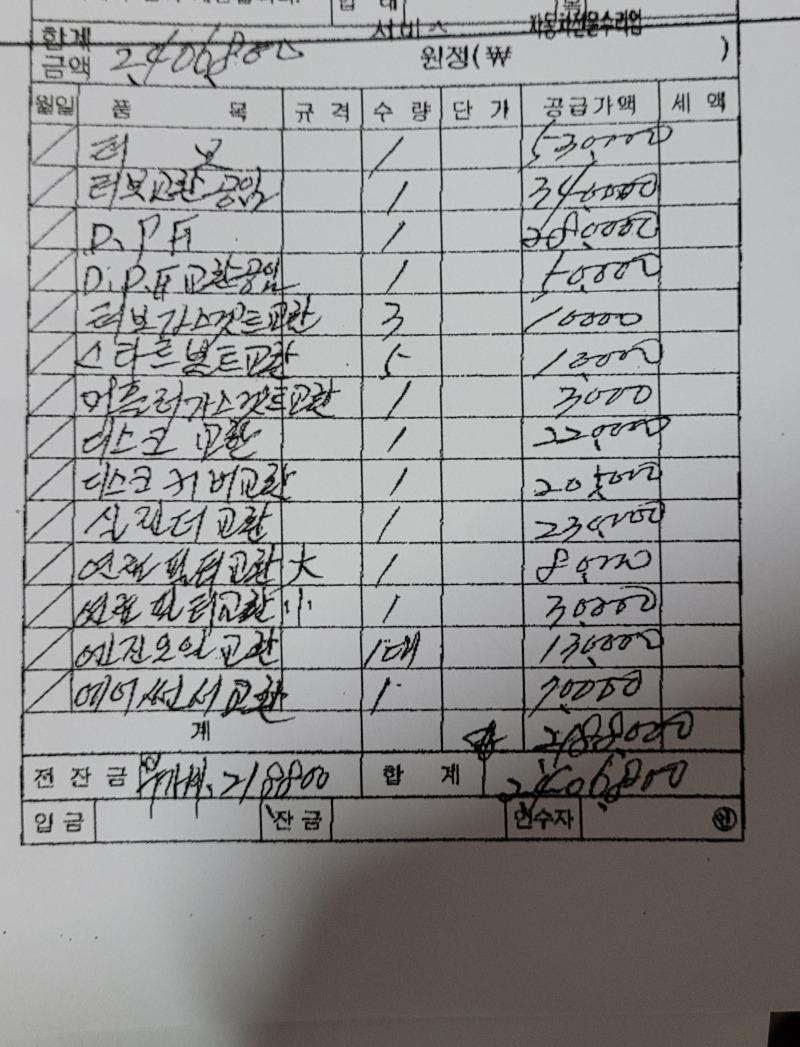 합계 서비스 자동차전문수리업
금액 2,406,800 원정(₩ )
월일 품 목 규 격 수 량 단 가 공급가액 세 액
터 보 1 530,000
터보교환공임 1 340,000
D.P.F 1 280,000
D.P.F 교환공임 1 50,000
터보가스켓트교환 3 10000
스타트볼트교환 5 10000
머플러가스켓트교환 1 3,000
디스크 교환 1 220,000
디스크커버교환 1 205,000
실린더교환 1 230,000
연료필터교환 大 1 80,000
연료필터교환 小 1 30,000
엔진오일교환 1대 130,000
에어썬서교환 1 70000
계 2,188,000
전 잔 금 218800 합 계 2,406,800
입 금 잔 금 인수자 인